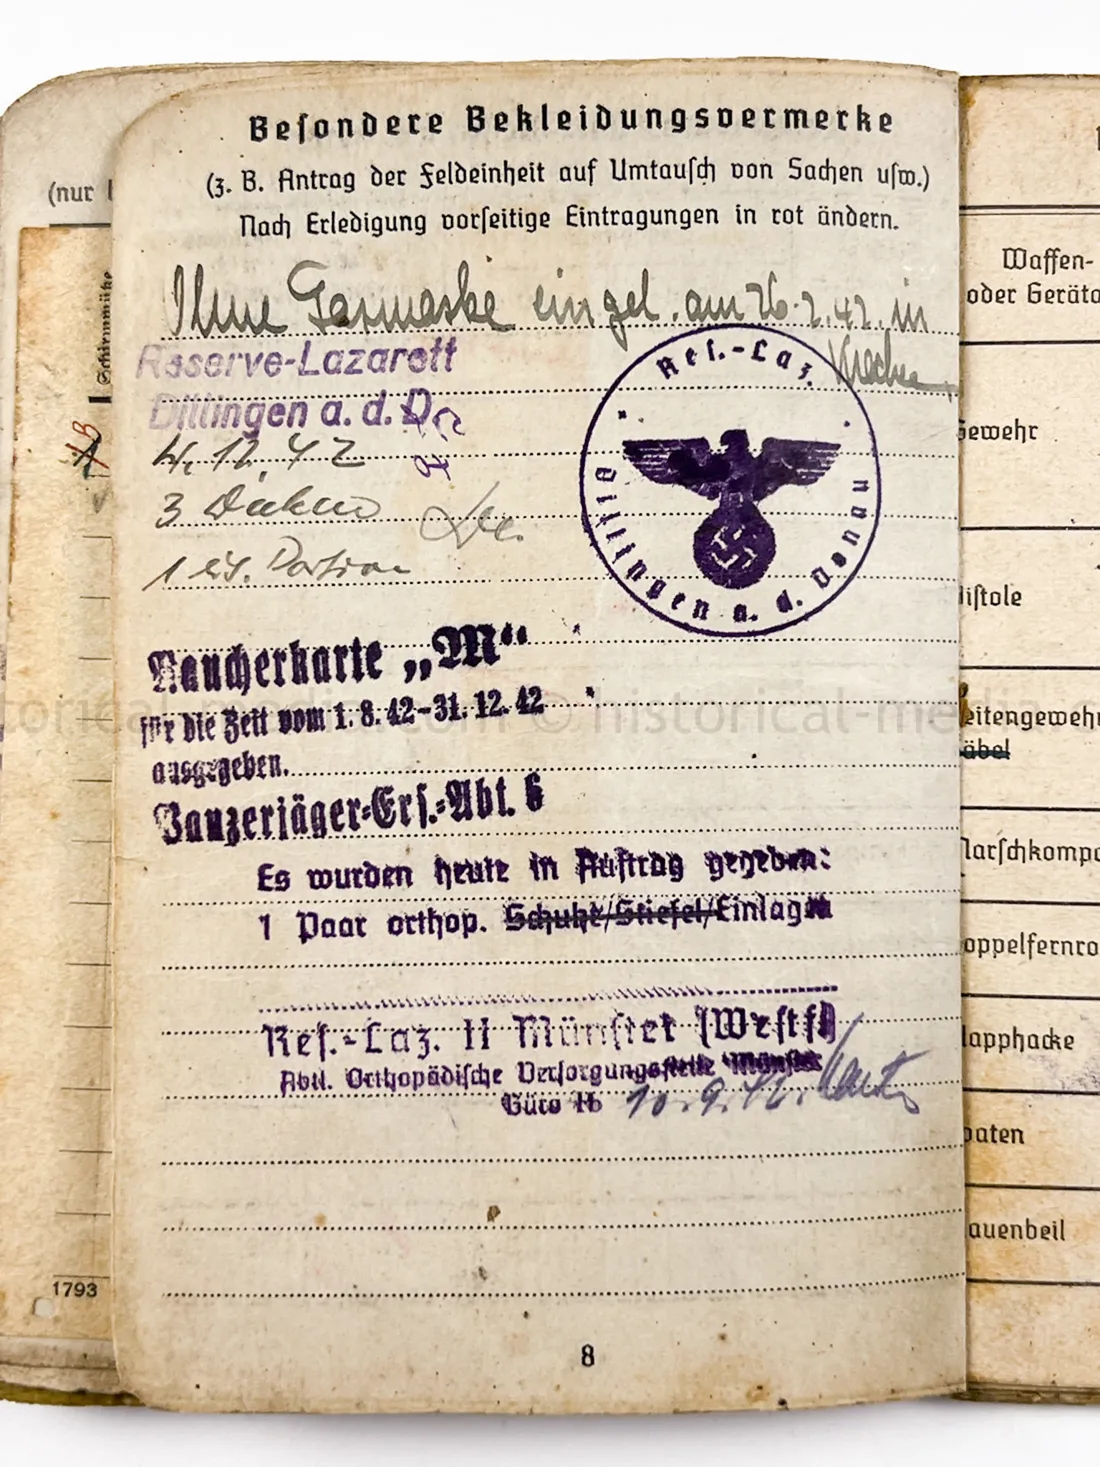 Besondere Bekleidungsvermerke
(z. B. Antrag der Feldeinheit auf Umtausch von Sachen usw.)
Nach Erledigung vorseitige Eintragungen in rot ändern.
Ohne Gasmaske eingel. am 26.2.42. in
Reserve-Lazarett
Dillingen a. d. D.
4.12.42
3 Decken
1 eis. Portion
Res.-Laz.
Dillingen a. d. Donau
Raucherkarte „M“
für die Zeit vom 1. 8. 42-31. 12. 42
ausgegeben.
Panzerjäger-Ers.-Abt. 6
Es wurden heute in Auftrag gegeben:
1 Paar orthop. Schuhe/Stiefel/Einlagen
Res.-Laz. II Münster (Westf)
Abtl. Orthopädische Versorgungsstelle Münster
Büro IIb 10.9.42.
8
(nur
Schirmmütze
1793
Waffen-
oder Gerät
Gewehr
Pistole
eitengewehr
äbel
Marschkomp
oppelfernro
lapphacke
paten
auenbeil
historical-media